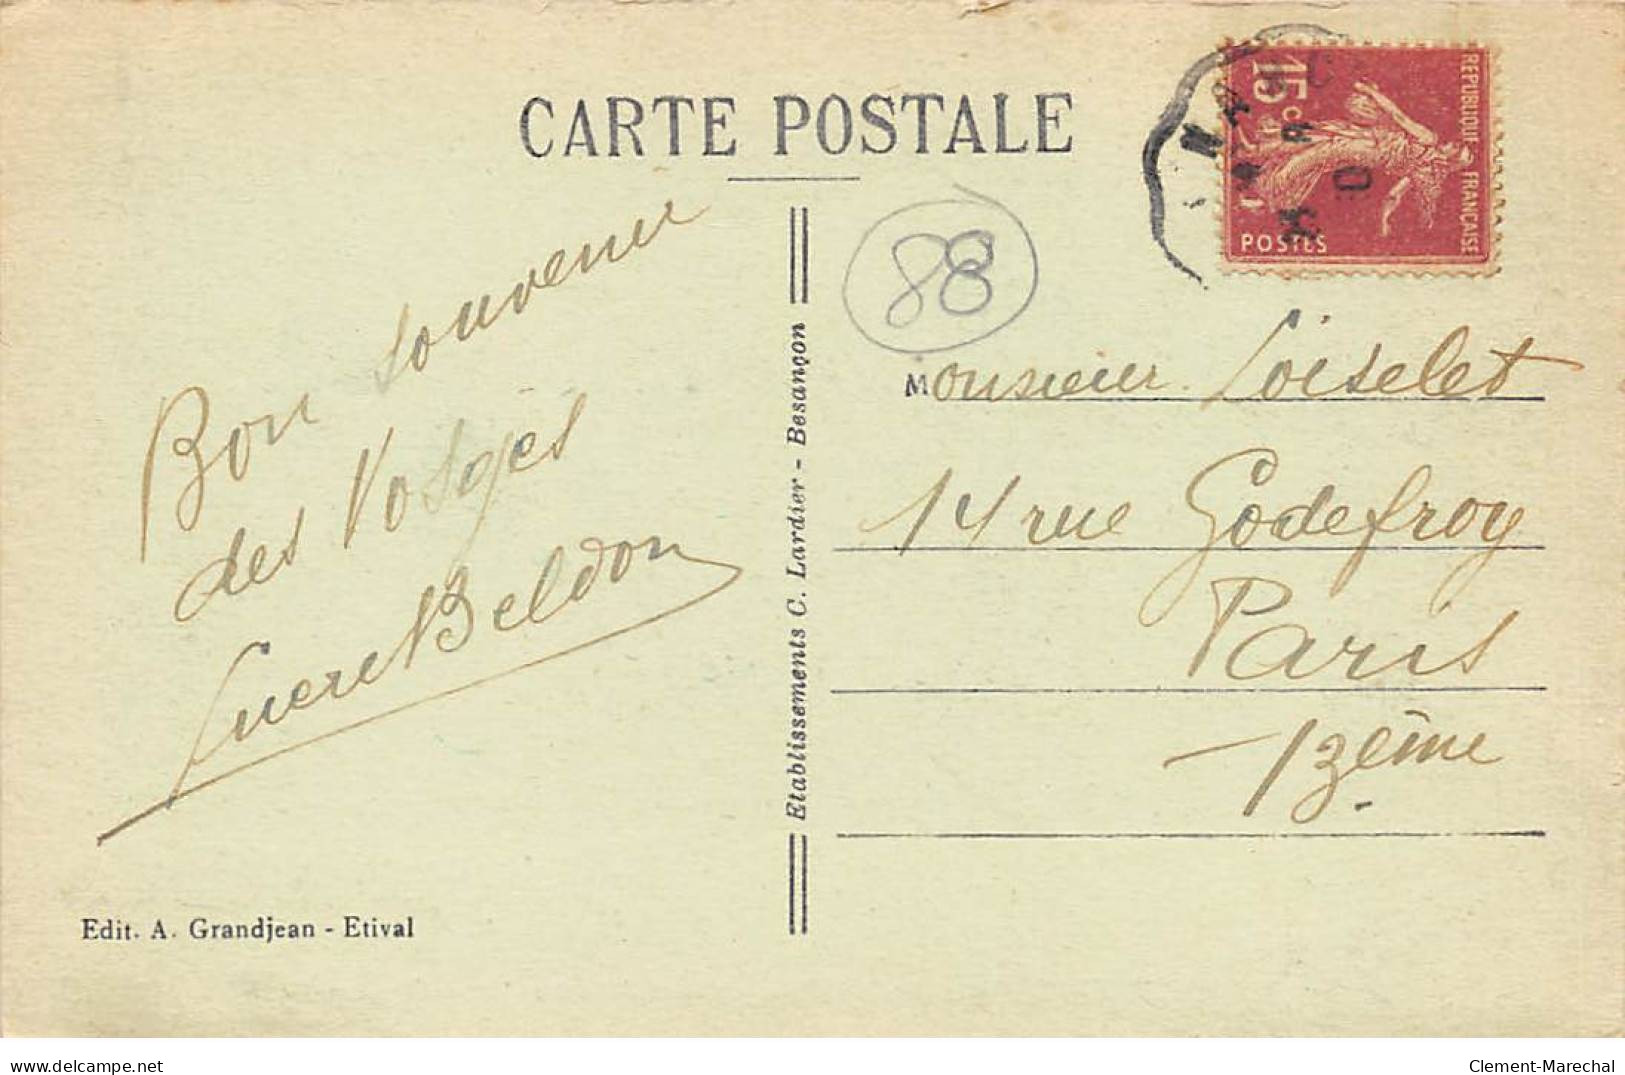 CARTE POSTALE
Bon souvenir
des Vosges
Beldon
Edit. A. Grandjean - Etival
Etablissements C. Lardier - Besançon
88
15c
REPUBLIQUE FRANÇAISE
POSTES
Monsieur Loiselet
14 rue Godefroy
Paris
- 13ème
delcampe.net
Clement-Marechal